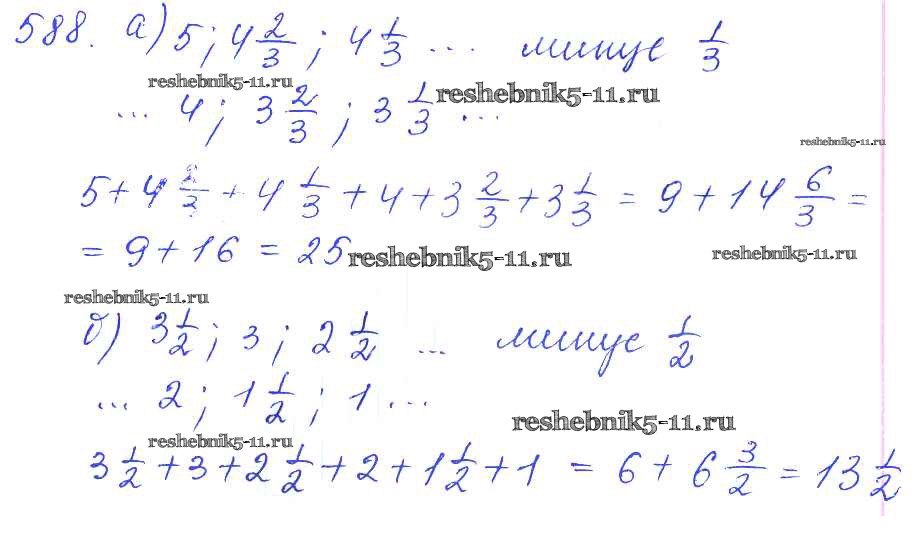 588. а) 5; 4 2/3; 4 1/3 ... минус 1/3
reshebnik5-11.ru
... 4; 3 2/3; 3 1/3 ...
reshebnik5-11.ru
reshebnik5-11.ru
5 + 4 2/3 + 4 1/3 + 4 + 3 2/3 + 3 1/3 = 9 + 14 6/3 =
= 9 + 16 = 25
reshebnik5-11.ru
reshebnik5-11.ru
reshebnik5-11.ru
б) 3 1/2; 3; 2 1/2 ... минус 1/2
... 2; 1 1/2; 1 ...
reshebnik5-11.ru
reshebnik5-11.ru
3 1/2 + 3 + 2 1/2 + 2 + 1 1/2 + 1 = 6 + 6 3/2 = 13 1/2